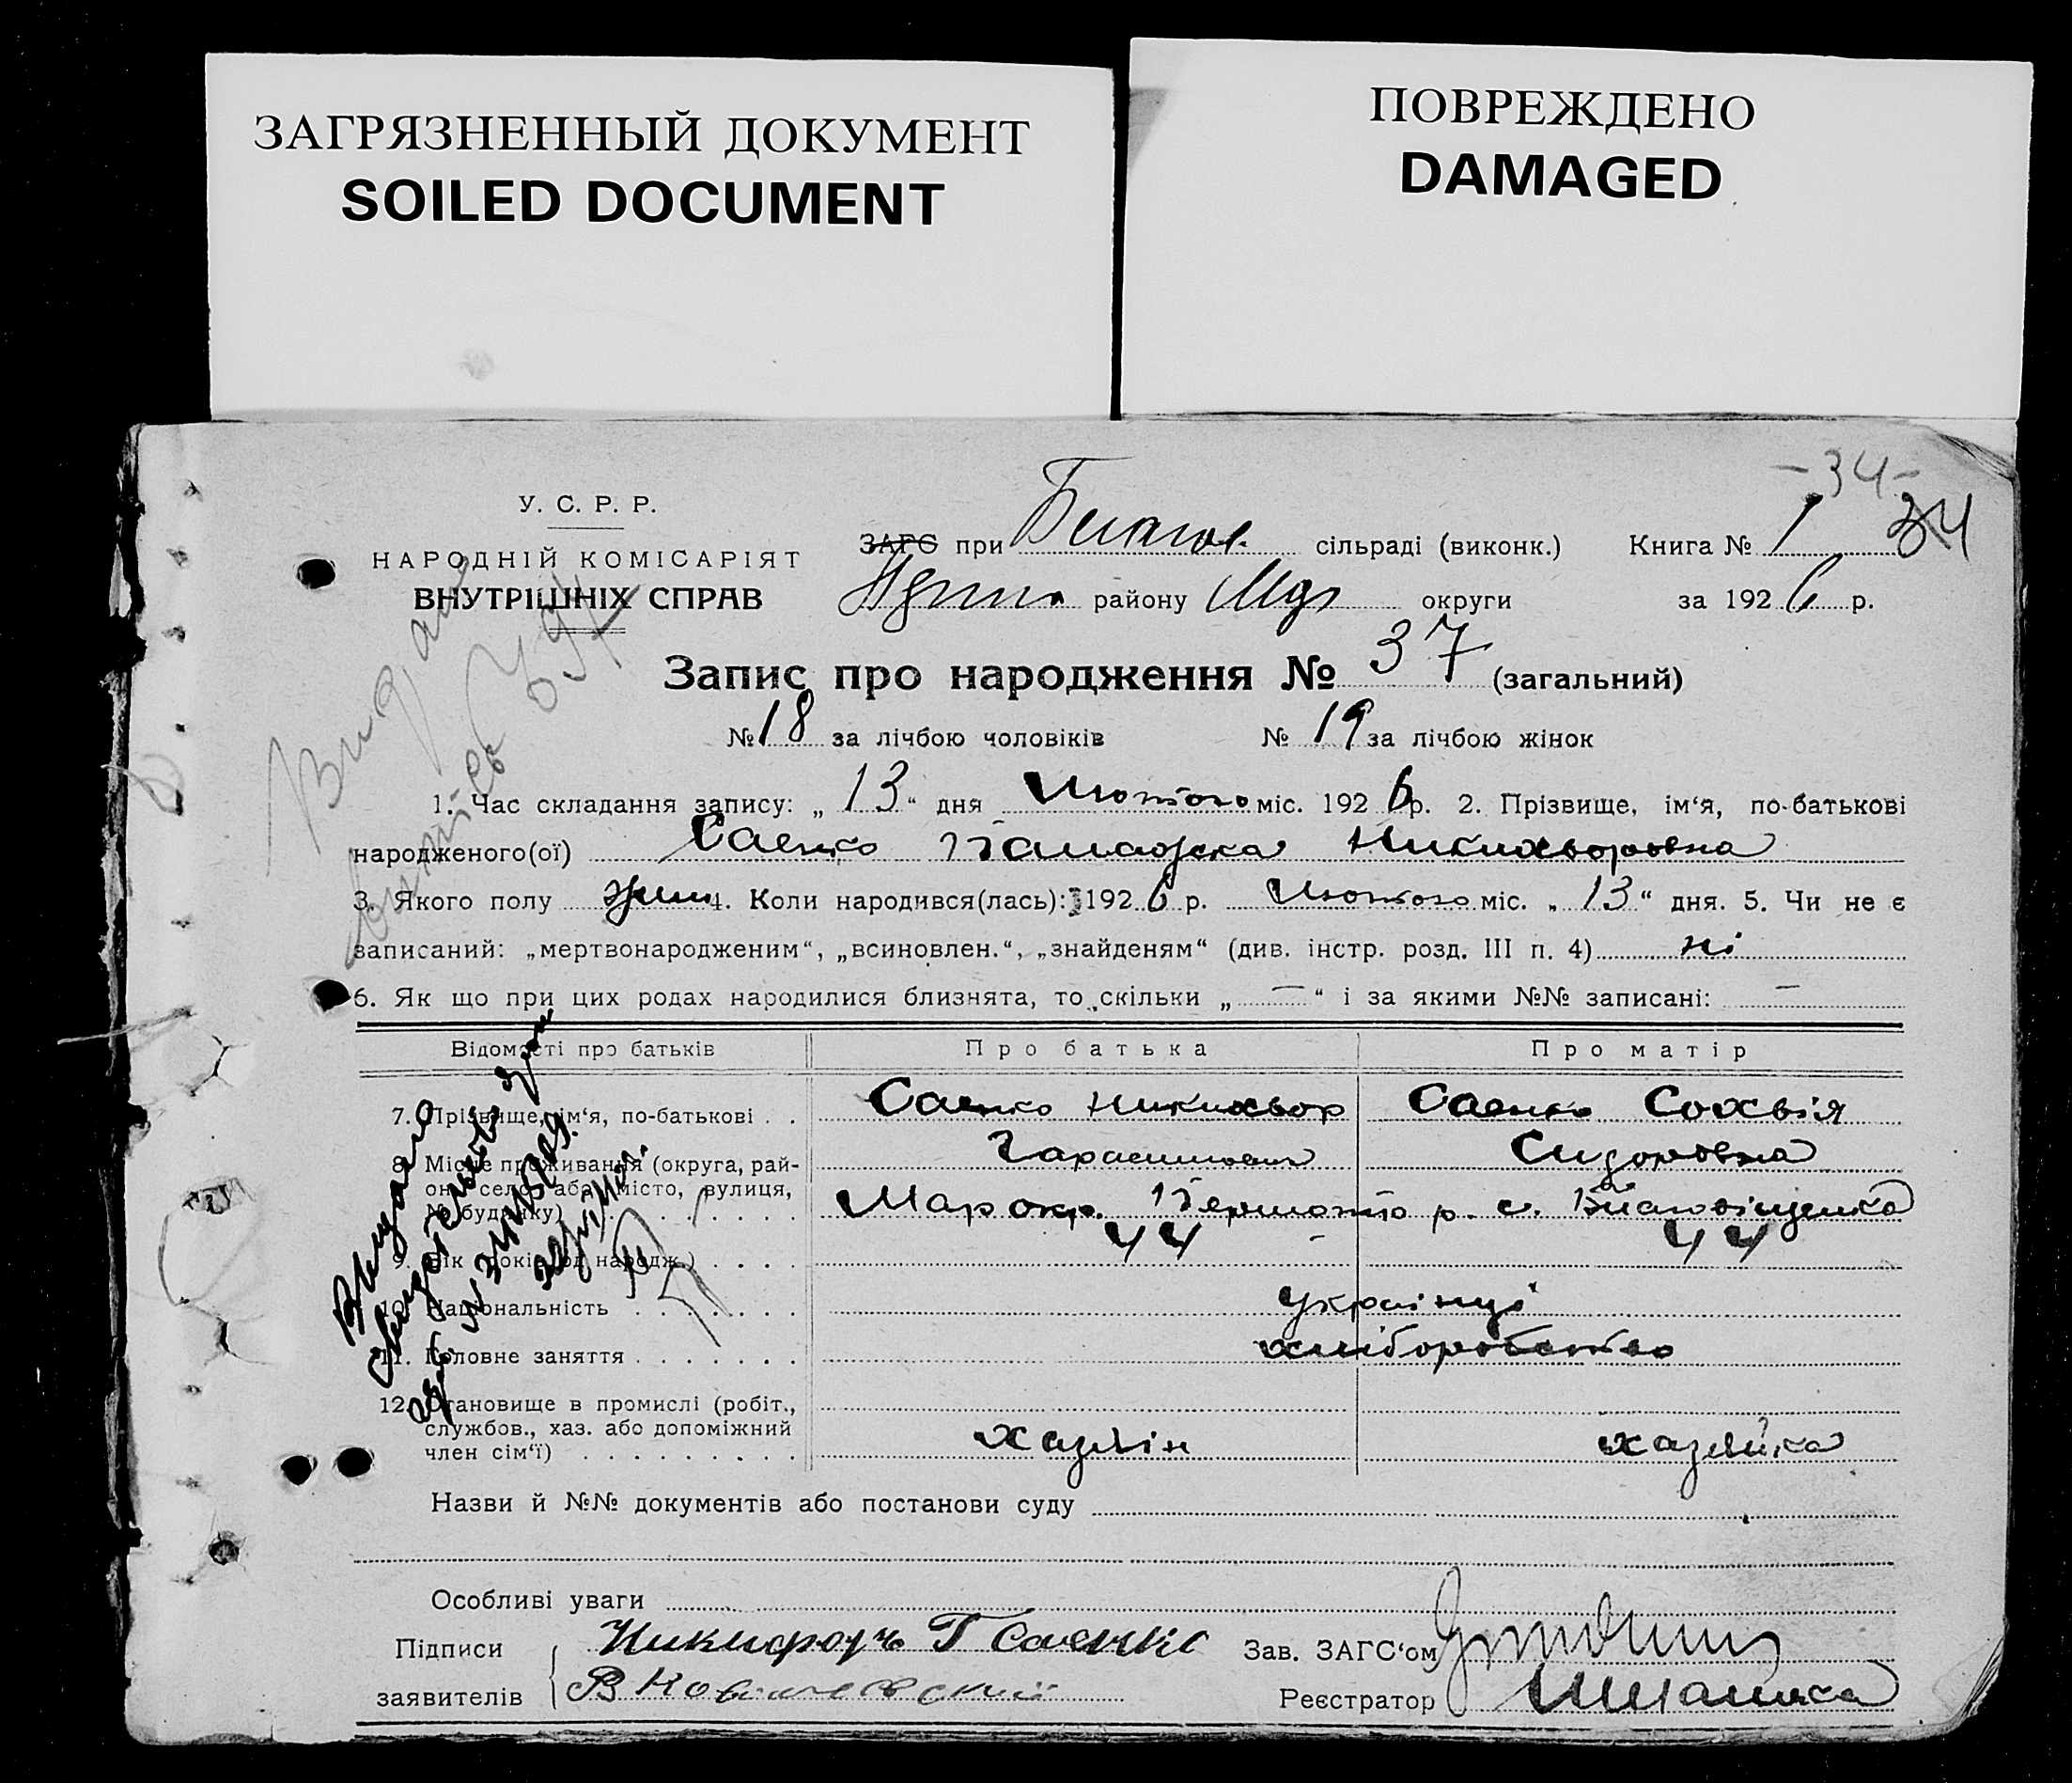 ЗАГРЯЗНЕННЫЙ ДОКУМЕНТ
SOILED DOCUMENT
ПОВРЕЖДЕНО
DAMAGED
-34-
У. С. Р. Р.
НАРОДНІЙ КОМІСАРІЯТ
ВНУТРІШНІХ СПРАВ
ЗАГС при сільраді (виконк.) Книга № 1 34
району округи за 1926 р.
Запис про народження № 37 (загальний)
№ 18 за лічбою чоловіків № 19 за лічбою жінок
1. Час складання запису: „ 13 “ дня Лютого міс. 1926 р. 2. Прізвище, ім‘я, по-батькові
народженого(ої) Саенко Никихворовна
3. Якого полу жин 4. Коли народився(лась): 1926 р. Лютого міс. „ 13 “ дня. 5. Чи не є
записаний: „мертвонародженим“, „всиновлен.“, „знайденям“ (див. інстр. розд. III п. 4) ні
6. Як що при цих родах народилися близнята, то скільки „ — “ і за якими №№ записані: —
Відомості про батьків Про батька Про матір
7. Прізвище, ім‘я, по-батькові . . Саенко Никихвор Саенко Сохвія
Гарасимович Сидоровна
8. Місце проживання (округа, рай-
он, село або місто, вулиця,
№ будинку) . . . . . Мар окр. р. с. Благовіщенка
9. Вік (років од народж.) . . . . 44 44
10. Національність . . . . . . . українці
11. Головне заняття . . . . . . . хліборобство
12. Становище в промислі (робіт.,
службов., хаз. або допоміжний
член сім‘ї) . . . . . . . . . хазяін хазяйка
Назви й №№ документів або постанови суду
Особливі уваги
Підписи Никифоръ Г Саенко Зав. ЗАГС‘ом
заявителів В Реєстратор
Видано